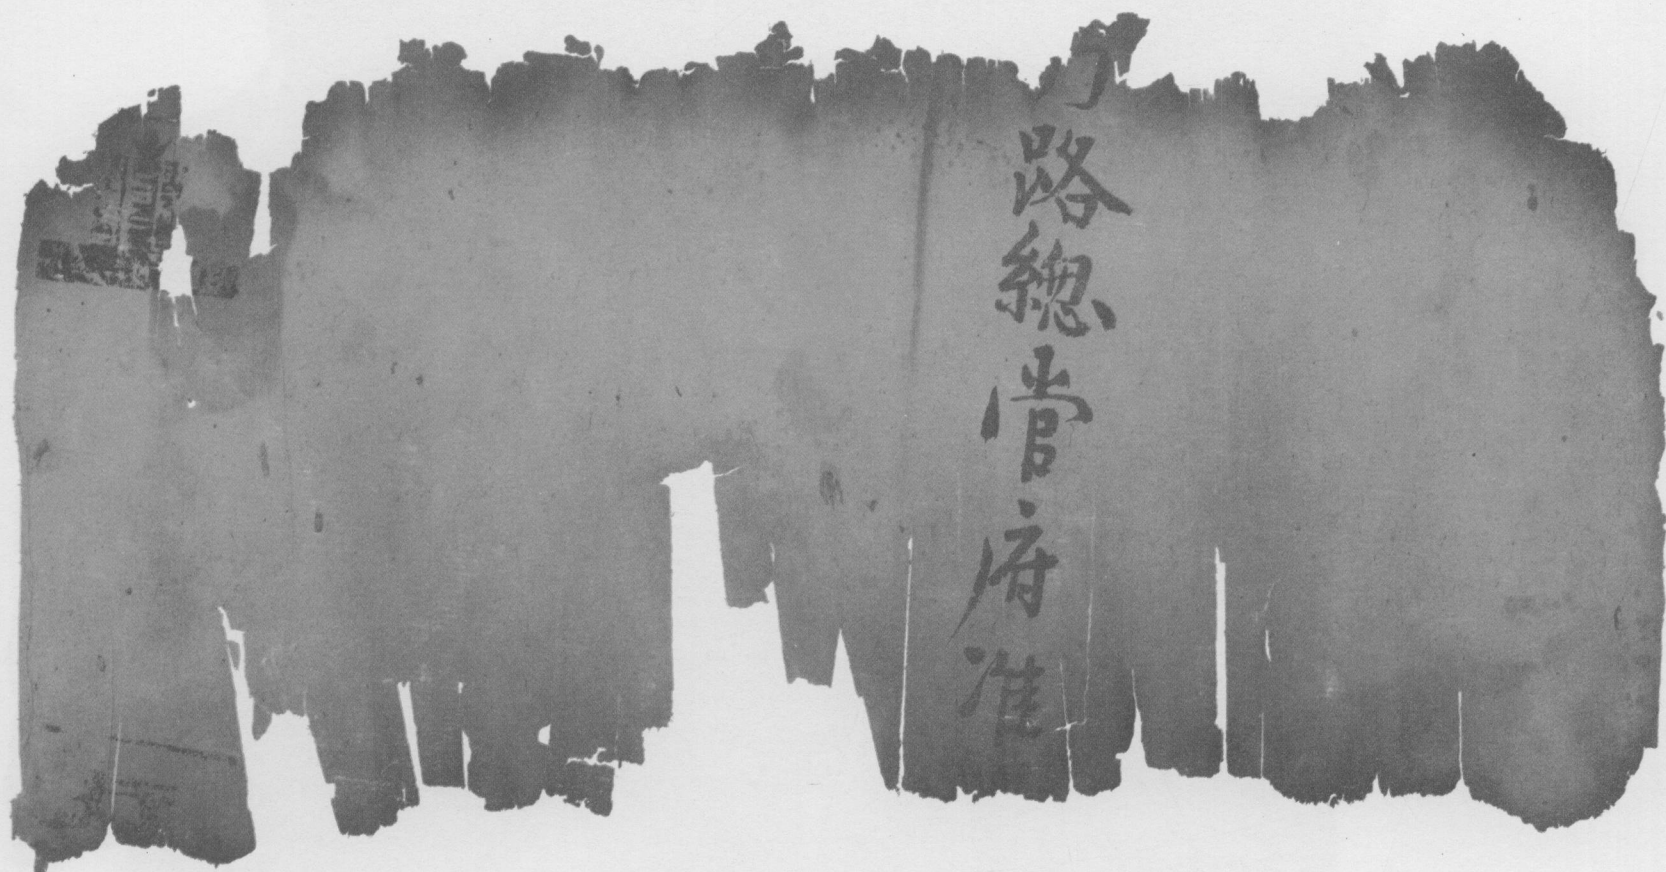 路總管府准